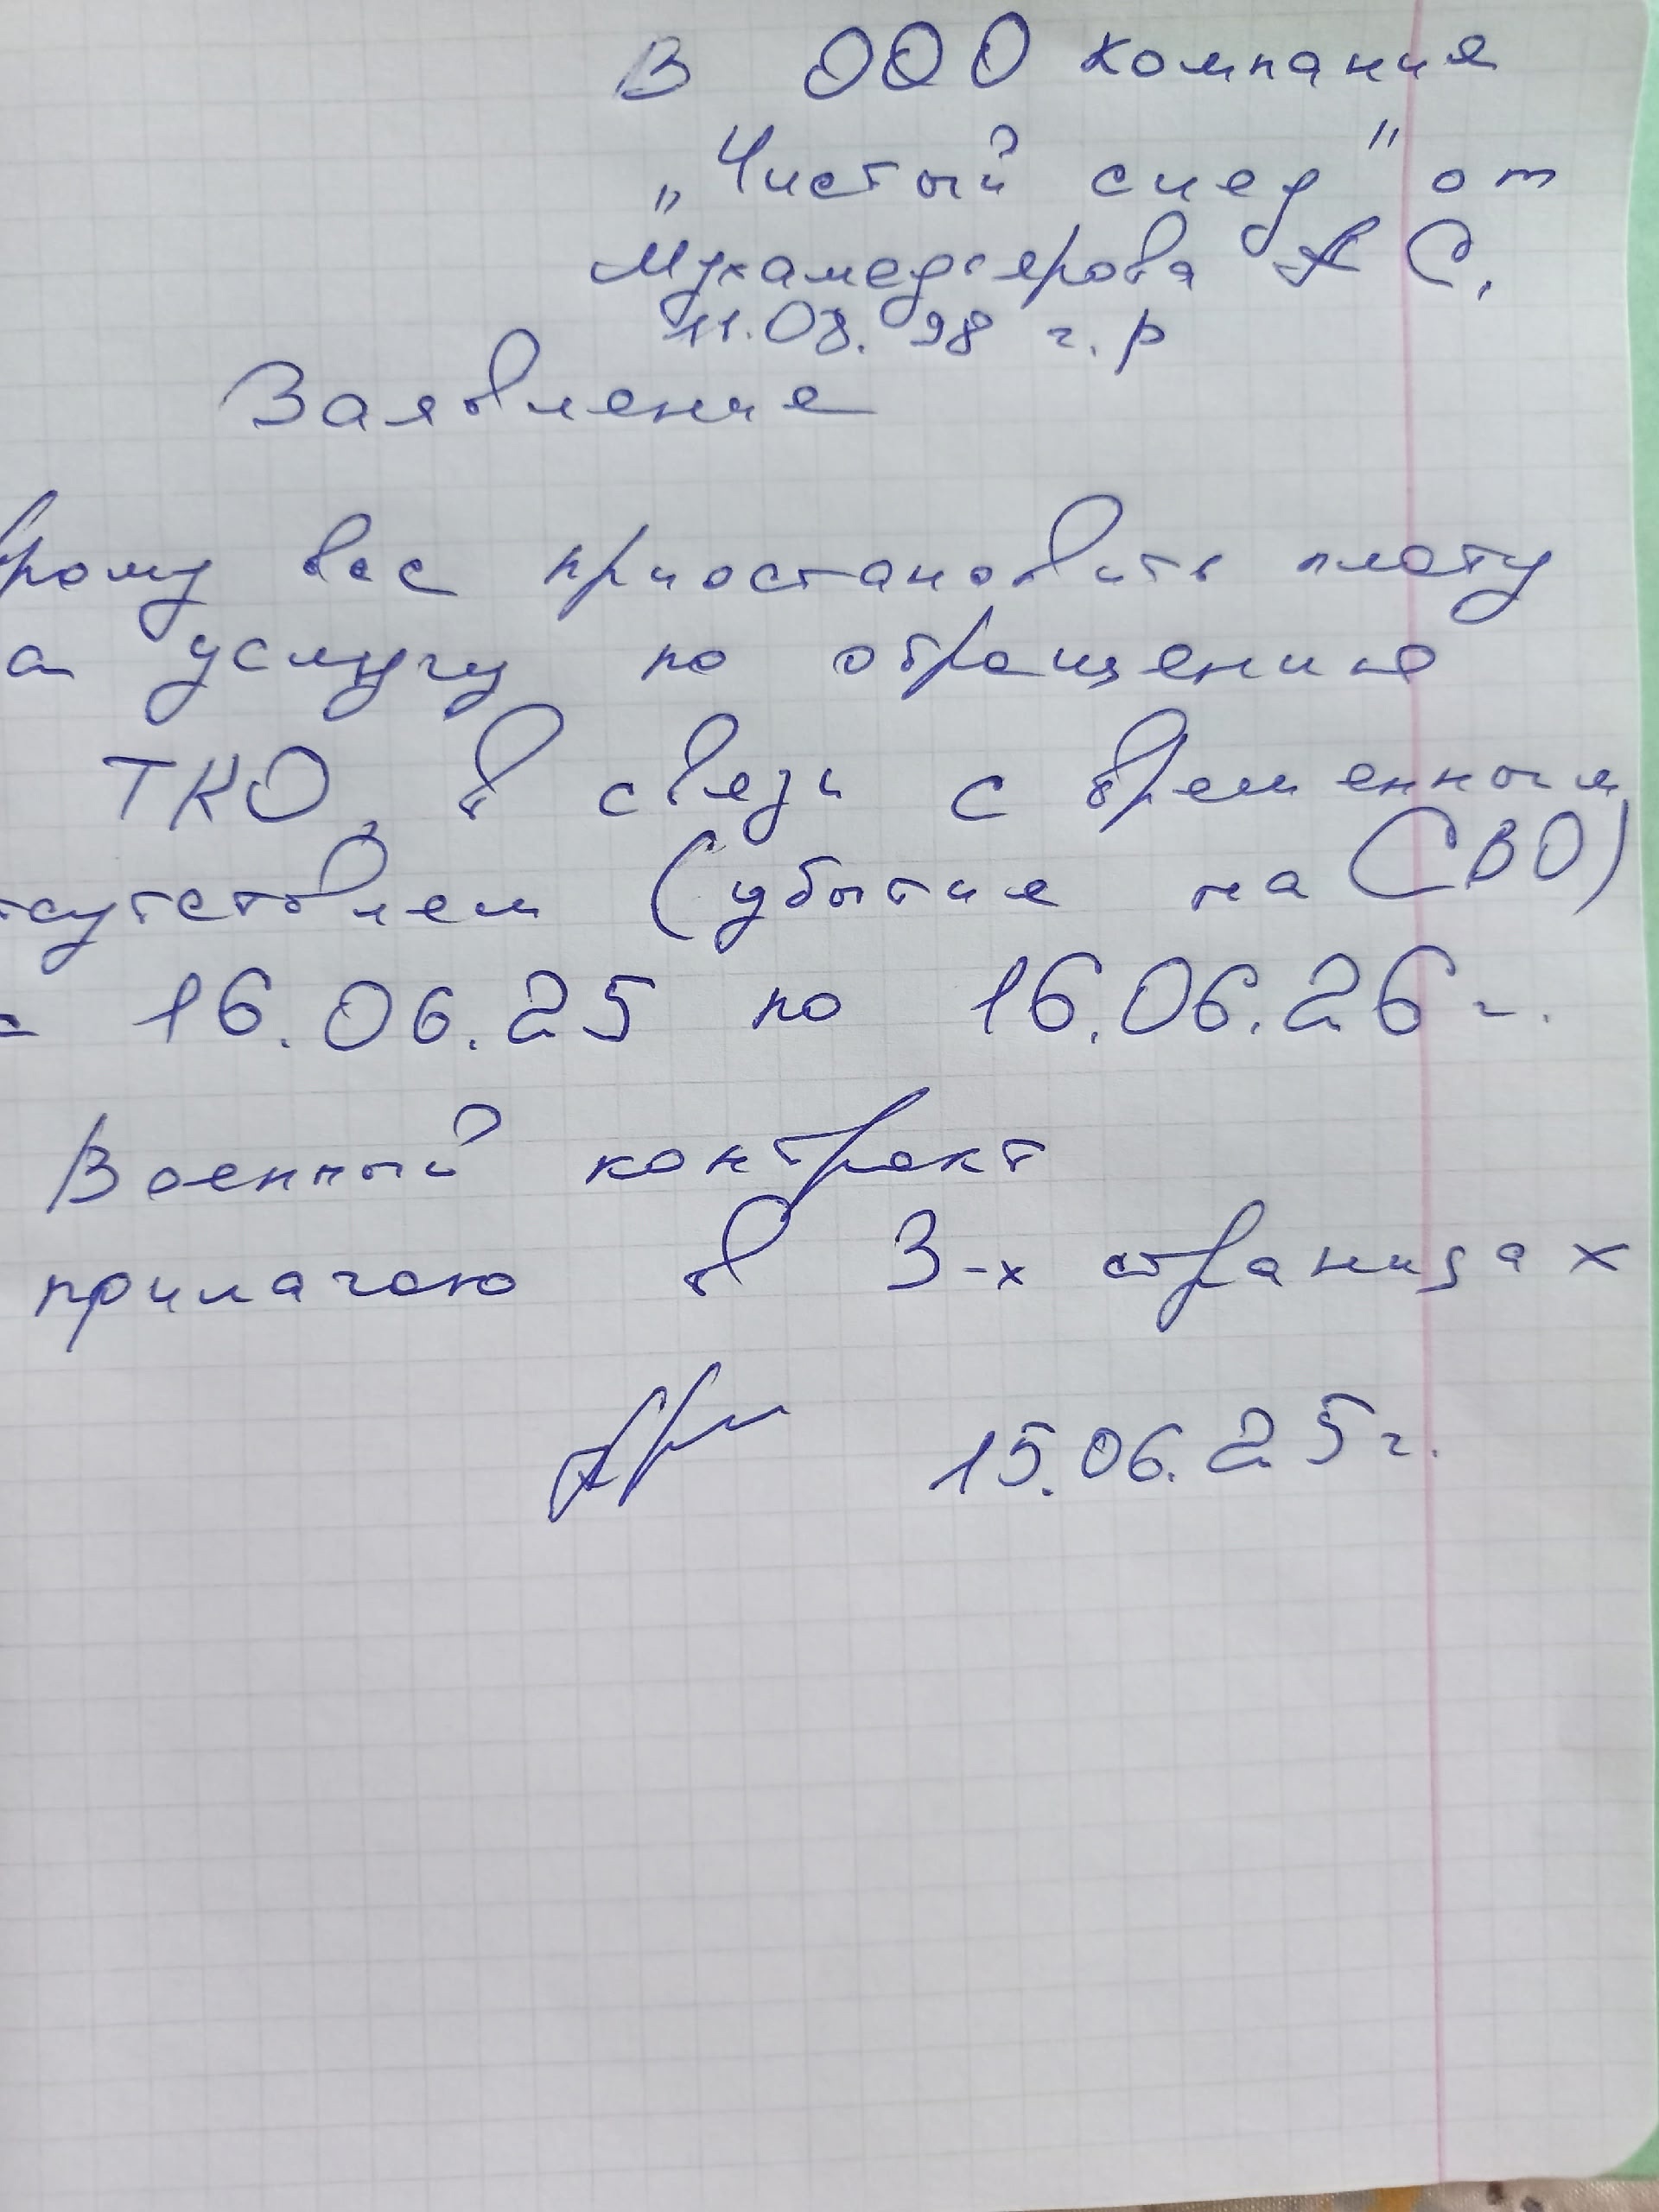 В ООО компания
"Чистый след" от
Мухамедьярова А С,
11.08.98 г.р
Заявление
рошу вас приостановить плату
а услугу по обращению
ТКО, в связи с временным
тсутствием (убытие на СВО)
с 16.06.25 по 16.06.26 г.
Военный контракт
прилагаю в 3-х страницах
15.06.25 г.